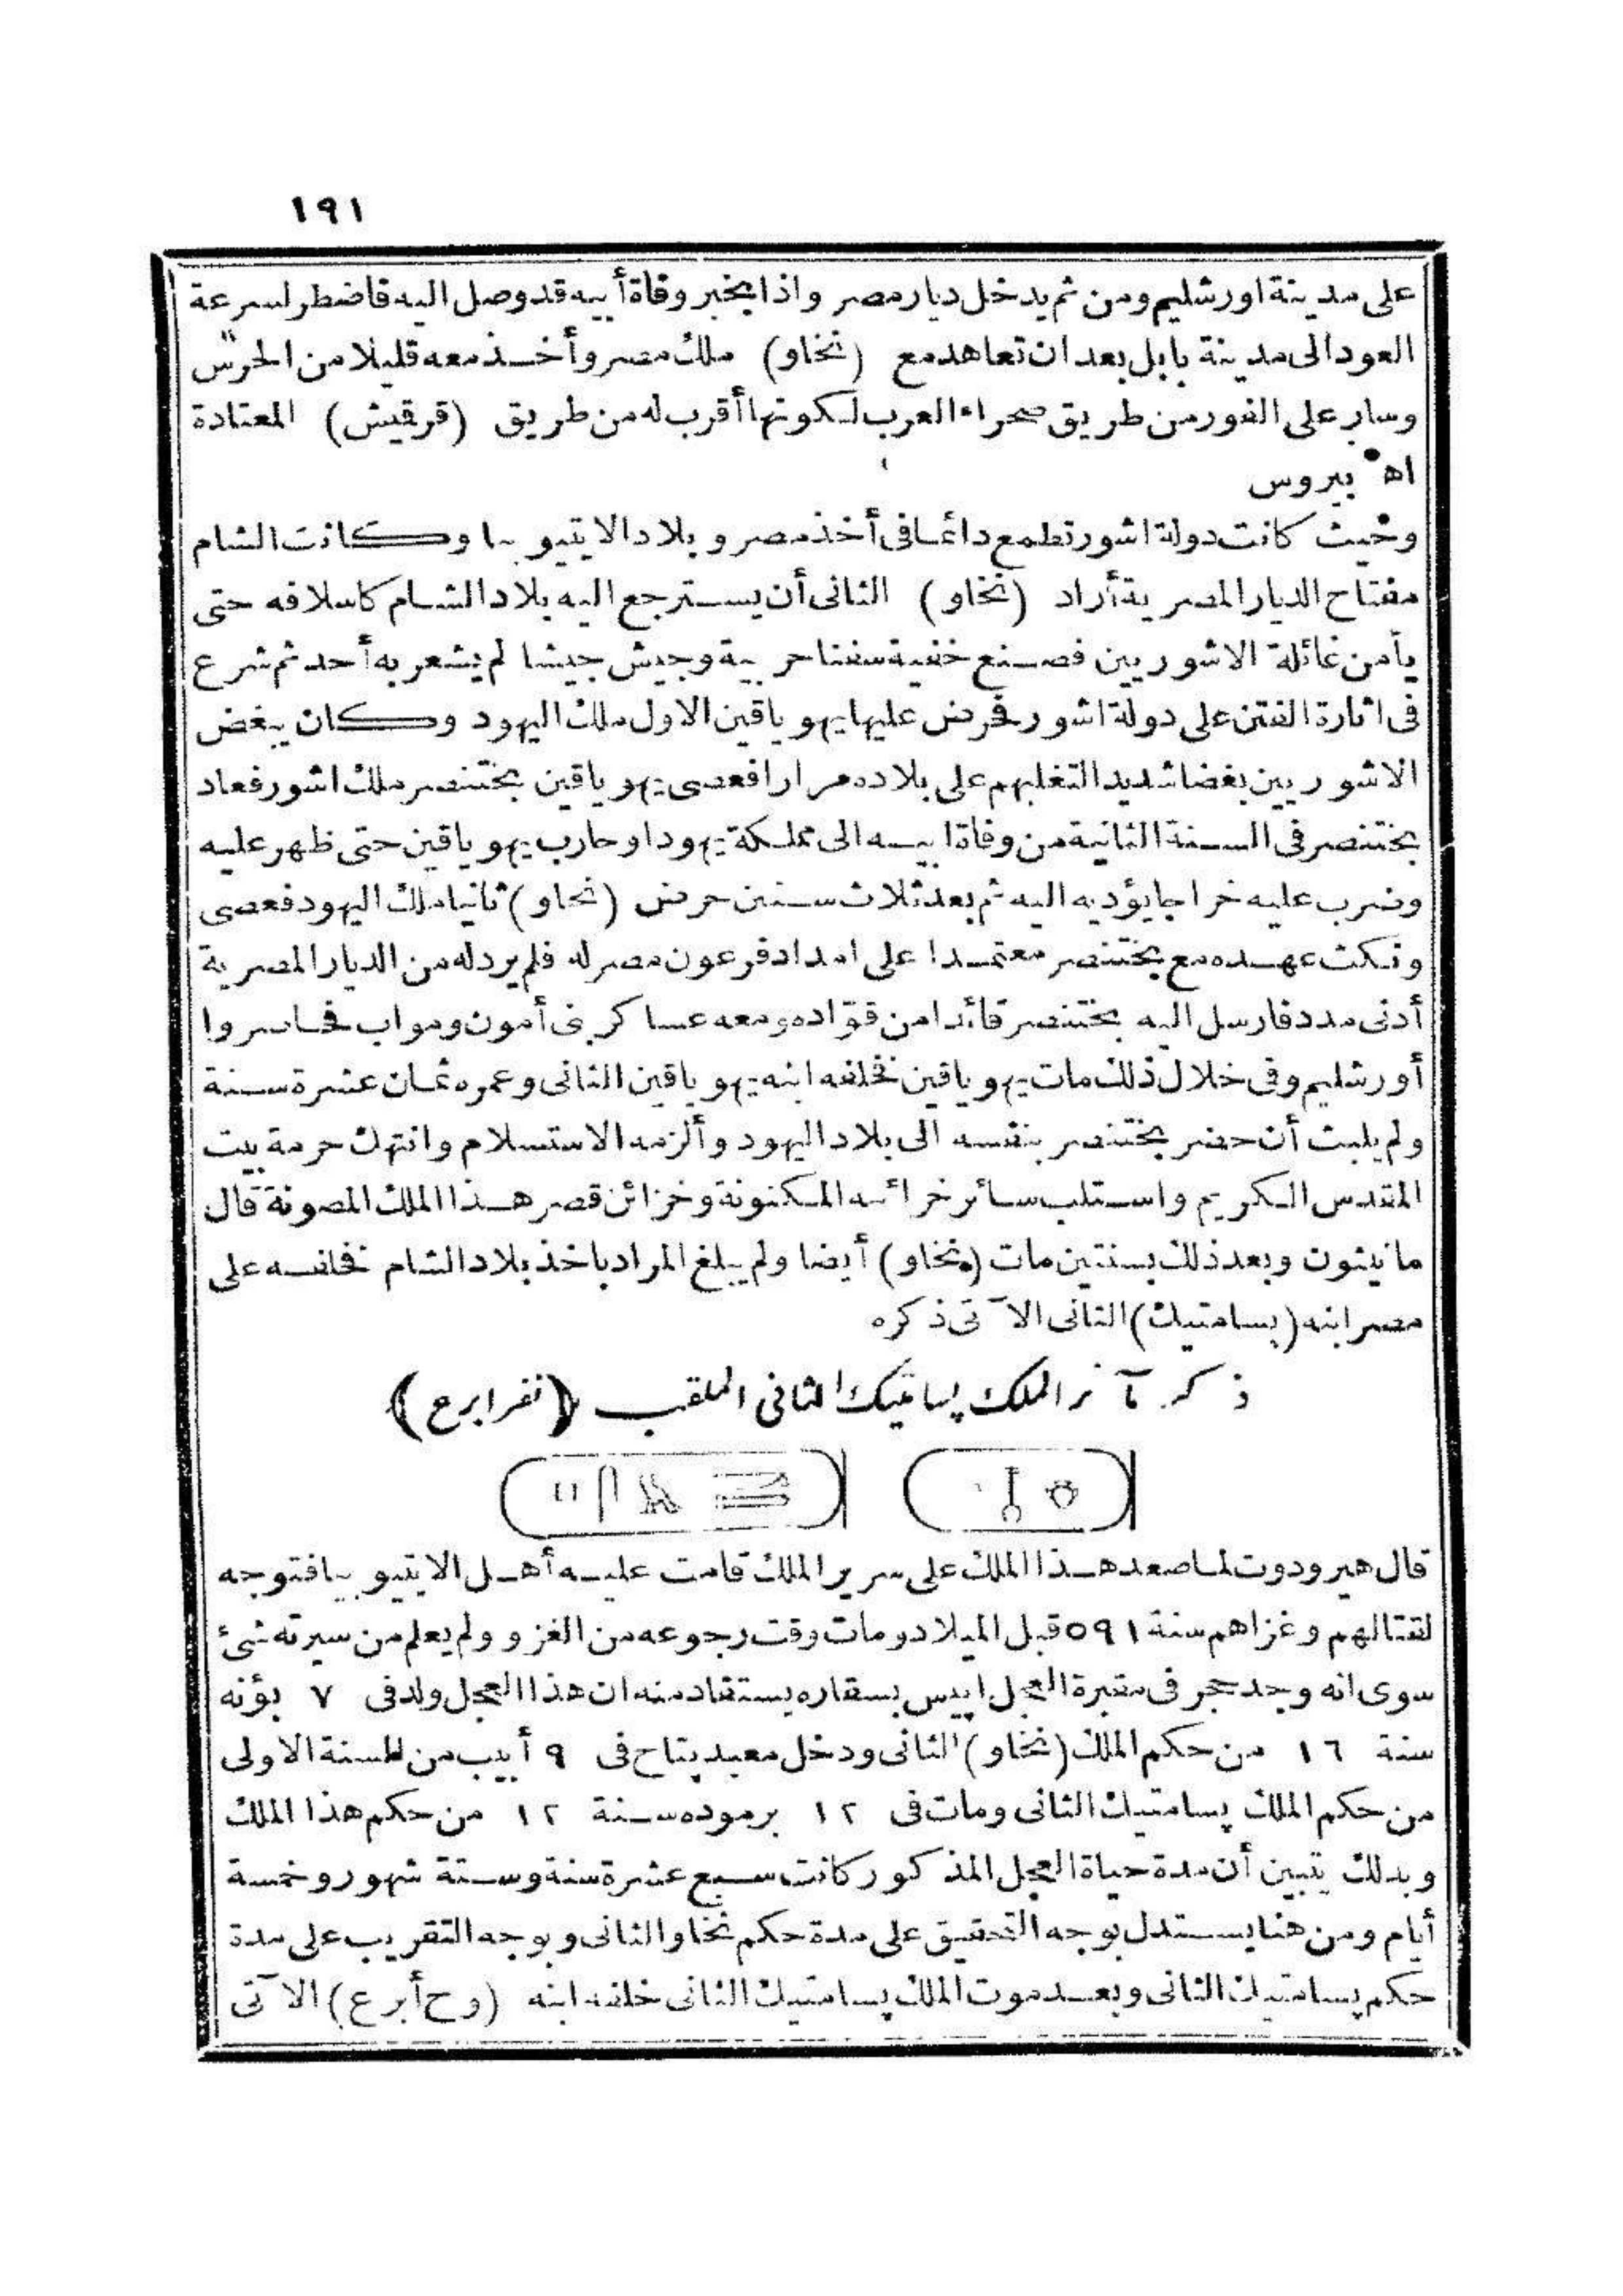 ١٩١
على مدينة اورشليم ومن ثم يدخل ديار مصر واذا بخبر وفاة أبيه قد وصل اليه فاضطر لسرعة
العود الى مدينة بابل بعد ان تعاهد مع (نخاو) ملك مصر وأخذ معه قليلا من الحرس
وسار على الفور من طريق صحراء العرب لكونها أقرب له من طريق (قرقيش) المعتادة
اه بيروس
وحيث كانت دولة اشور تطمع دائما فى أخذ مصر وبلاد الايتيوبيا وكانت الشام
مفتاح الديار المصرية أراد (نخاو) الثانى أن يسترجع اليه بلاد الشام كاسلافه حتى
يأمن غائلة الاشوريين فصنع خفية سفنا حربية وجيش جيشا لم يشعر به أحد ثم شرع
فى اثارة الفتن على دولة اشور فحرض عليها يهوياقين الاول ملك اليهود وكان يبغض
الاشوريين بغضا شديد التغلبهم على بلاده مرارا فعصى يهوياقين بختنصر ملك اشور فعاد
بختنصر فى السنة الثانية من وفاة ابيه الى مملكة يهودا وحارب يهوياقين حتى ظهر عليه
وضرب عليه خراجا يؤديه اليه ثم بعد ثلاث سنين حرض (نخاو) ثانيا ملك اليهود فعصى
ونكث عهده مع بختنصر معتمدا على امداد فرعون مصر له فلم يرد له من الديار المصرية
أدنى مدد فارسل اليه بختنصر قائدا من قوّاده ومعه عساكر بنى أمون ومواب فحاصروا
أورشليم وفى خلال ذلك مات يهوياقين فخلفه ابنه يهوياقين الثانى وعمره ثمان عشرة سنة
ولم يلبث أن حضر بختنصر بنفسه الى بلاد اليهود وألزمه الاستسلام وانتهك حرمة بيت
المقدس الكريم واستلب سائر خزائنه المكنونة وخزائن قصر هذا الملك المصونة قال
مانيثون وبعد ذلك بسنتين مات (نخاو) أيضا ولم يبلغ المراد باخذ بلاد الشام فخلفه على
مصر ابنه (پسامتيك) الثانى الآتى ذكره
ذكر مآثر الملك پسامتيك الثانى الملقب (نفرابرع)
قال هيرودوت لما صعد هذا الملك على سرير الملك قامت عليه أهل الايتيوبيا فتوجه
لقتالهم وغزاهم سنة ٥٩١ قبل الميلاد ومات وقت رجوعه من الغزو ولم يعلم من سيرته شئ
سوى انه وجد حجر فى مقبرة العجل اپيس بسقاره يستفاد منه ان هذا العجل ولد فى ٧ بؤنه
سنة ١٦ من حكم الملك (نخاو) الثانى ودخل معبد پتاح فى ٩ أبيب من السنة الاولى
من حكم الملك پسامتيك الثانى ومات فى ١٢ برموده سنة ١٢ من حكم هذا الملك
وبذلك يتبين أن مدة حياة العجل المذكور كانت سبع عشرة سنة وستة شهور وخمسة
أيام ومن هنا يستدل بوجه التحقيق على مدة حكم نخاو الثانى وبوجه التقريب على مدة
حكم پسامتيك الثانى وبعد موت الملك پسامتيك الثانى خلفه ابنه (وح أبرع) الآتى